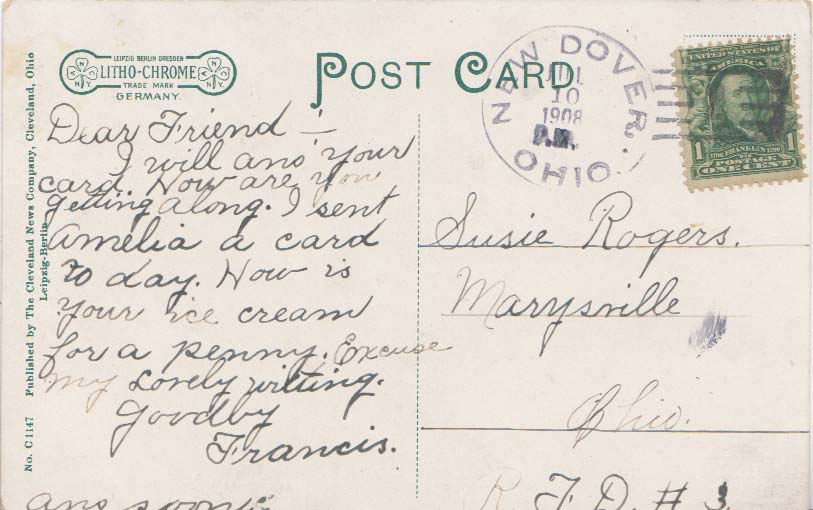 LEIPZIG BERLIN DRESDEN
LITHO-CHROME
TRADE MARK
GERMANY.
POST CARD
NEW DOVER,
JUL
10
1908
P.M.
OHIO.
UNITED STATES OF
AMERICA
1 1
1706 FRANKLIN 1790
POSTAGE
ONE CENT
Dear Friend —
I will ans your
card. How are you
getting along. I sent
Amelia a card
to day. How is
your ice cream
for a penny. Excuse
my lovely writing.
Goodby
Francis.
ans soon.
Susie Rogers.
Marysville
Ohio.
R. F. D. # 3.
No. C 1147 Published by The Cleveland News Company, Cleveland, Ohio
Leipzig-Berlin